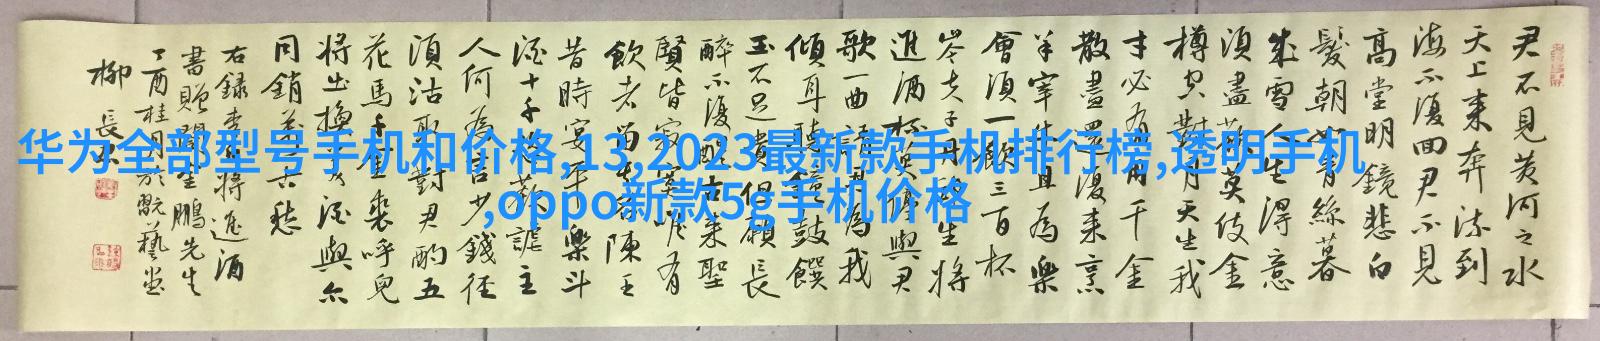 华为全部型号手机和价格,13,2023最新款手机排行榜,透明手机
,oppo新款5g手机价格
君不見黄河之水
天上来奔流到
海不復回君不見
高堂明鏡悲白
髮朝如青絲暮
成雪人生得意
須盡歡莫使金
樽空對月天生我
才必有用千金
散盡還復来烹
羊宰牛且為樂
會須一飲三百杯
岑夫子丹丘生將
進酒杯莫停與君
歌一曲請君為我
傾耳聽鐘鼓饌
玉不足貴但願長
醉不復醒古来聖
賢皆寂寞唯有
飲者留其名陳王
昔時宴平樂斗
酒十千恣歡謔主
人何為言少錢徑
須沽取對君酌五
花馬千金裘呼兒
將出換美酒與尔
同銷萬古愁
右録李白將進酒
書贈生鵬先生
丁酉桂月於翫藝堂
柳長